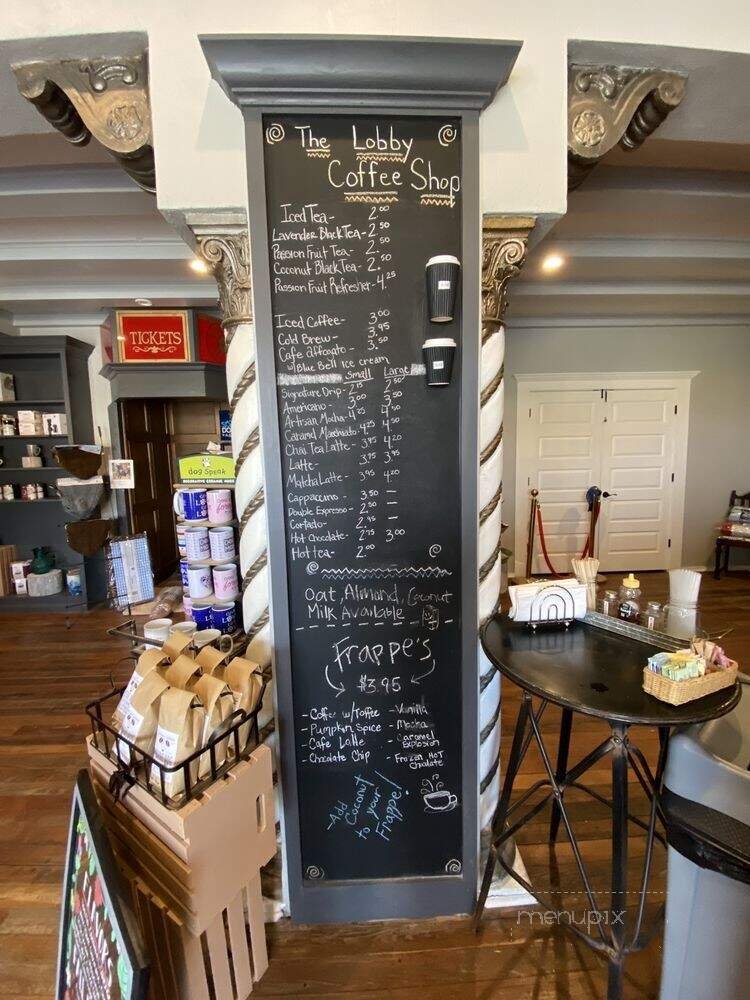 The Lobby
Coffee Shop
Iced Tea- 2.00
Lavender Black Tea- 2.50
Passion Fruit Tea- 2.50
Coconut Black Tea- 2.50
Passion Fruit Refresher- 4.25
Iced Coffee- 3.00
Cold Brew- 3.95
Cafe affogato- 3.50
w/Blue Bell Ice cream
Small Large
Signature Drip- 2.15 2.50
Americano- 3.00 3.50
Artisan Mocha- 4.25 4.50
Caramel Macchiato 4.25 4.50
Chai Tea Latte- 3.95 4.20
Latte- 3.75 3.95
Matcha Latte- 3.95 4.20
Cappaccino- 3.50 —
Double Espresso- 2.50 —
Cortado- 2.95 —
Hot Chocolate- 2.75 3.00
Hot tea- 2.00
Oat, Almond, Coconut
Milk Available
Frappe's
$3.95
- Coffee w/Toffee - Vanilla
- Pumpkin Spice - Mocha
- Cafe Latte - Caramel Explosion
- Chocolate Chip - Frozen HOT Choclate
-Add
Coconut
to your
Frappe!
TICKETS
dog Speak
DECORATIVE CERAMIC MUGS
menupix